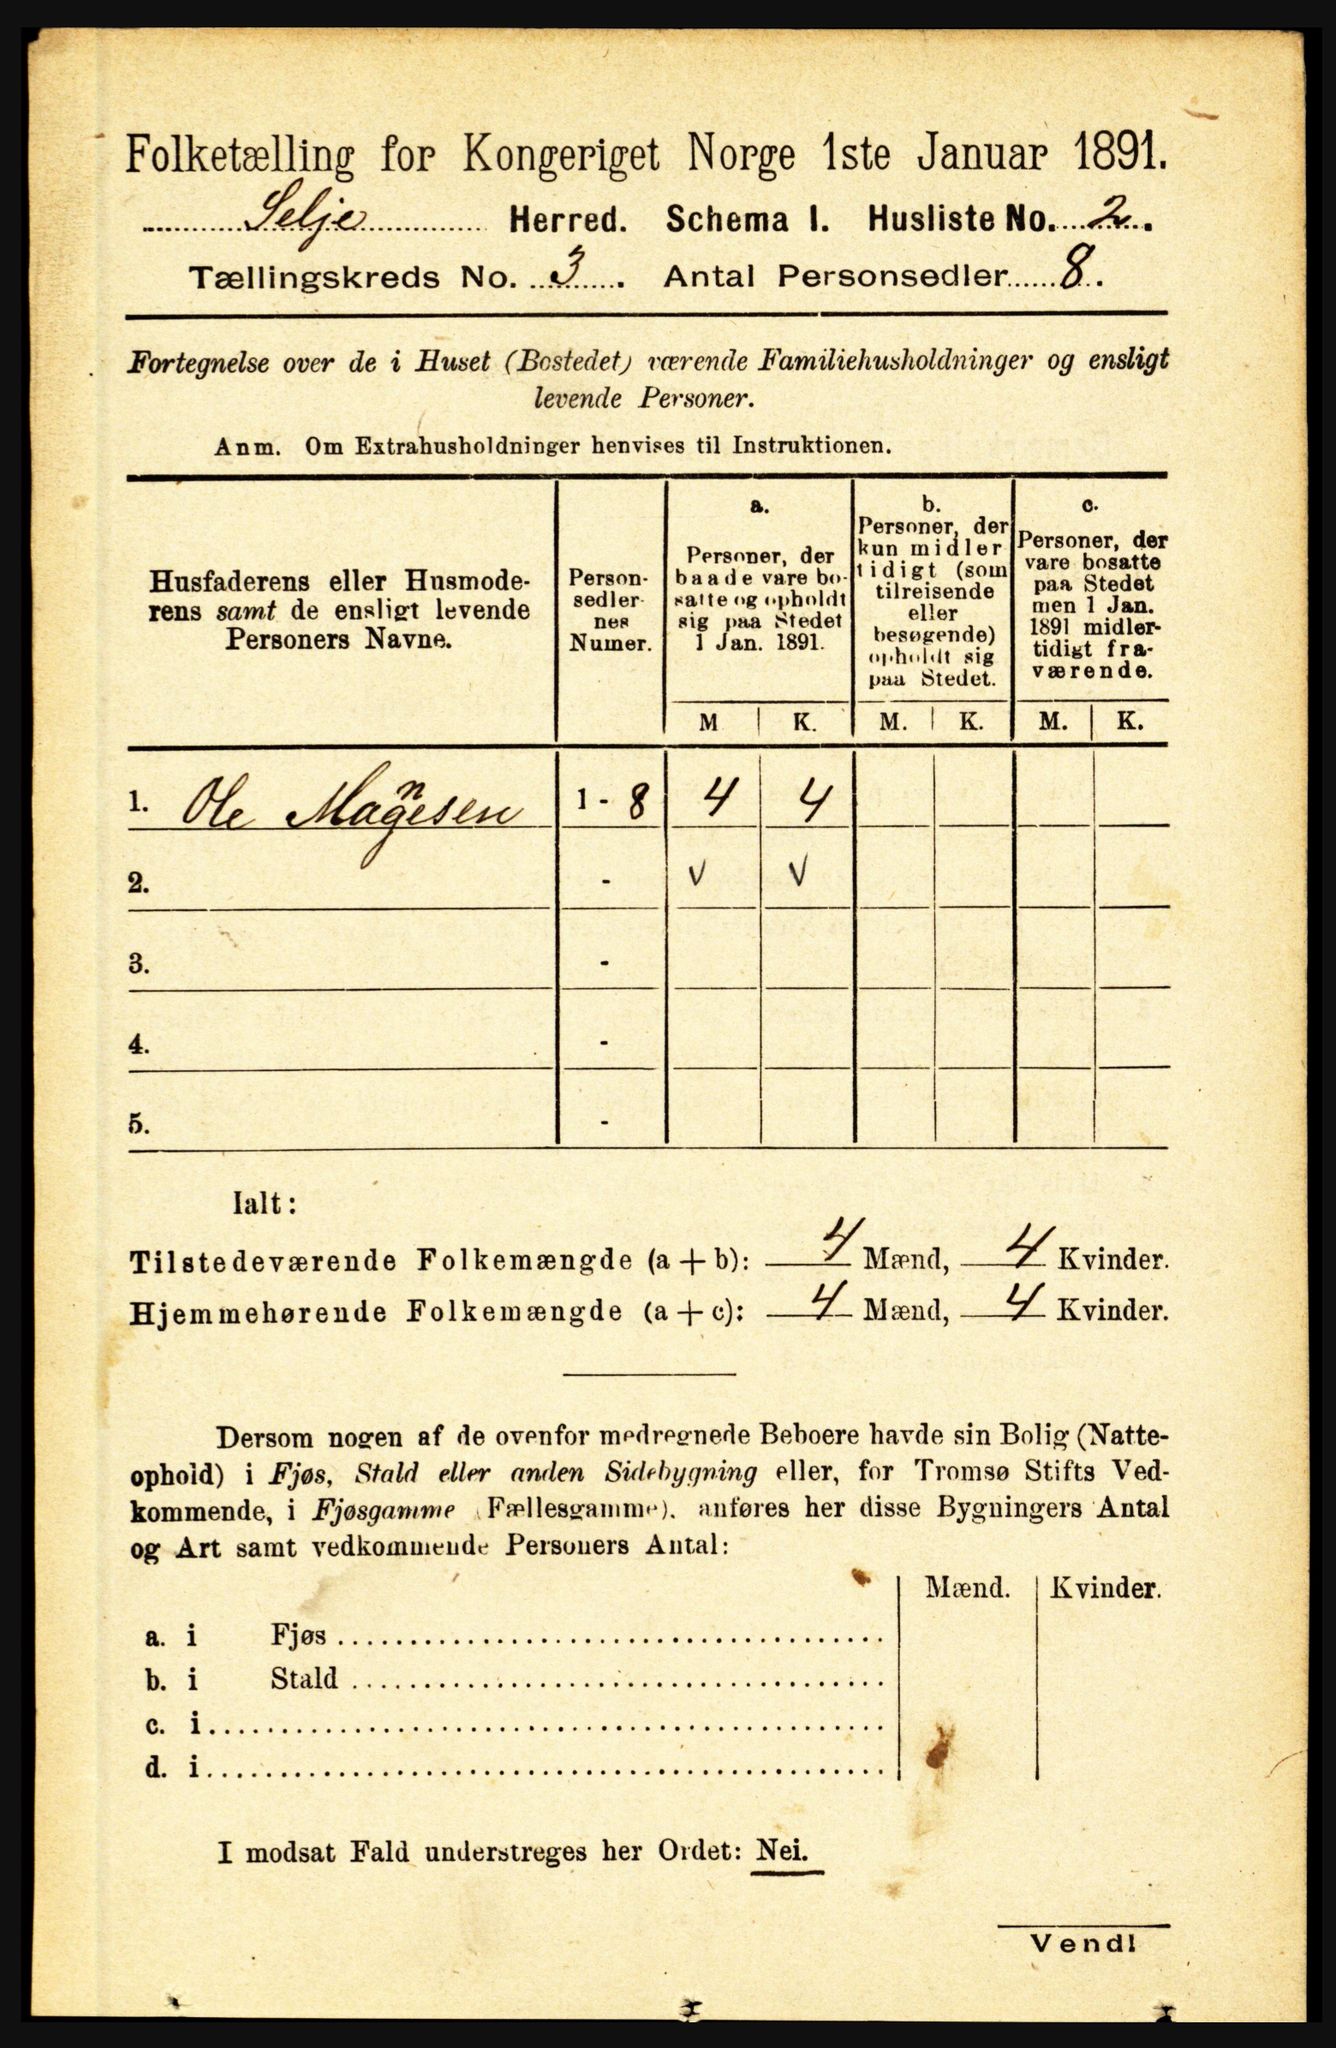 Folketælling for Kongeriget Norge 1ste Januar 1891.
Selje Herred. Schema I. Husliste No. 2.
Tællingskreds No. 3. Antal Personsedler 8.
Fortegnelse over de i Huset (Bostedet) værende Familiehusholdninger og ensligt
levende Personer.
Anm. Om Extrahusholdninger henvises til Instruktionen.
Husfaderens eller Husmode-
rens samt de ensligt levende
Personers Navne.
Person-
sedler-
nes
Numer.
a.
Personer, der
baade vare bo-
satte og opholdt
sig paa Stedet
1 Jan. 1891.
b.
Personer, der
kun midler
tidigt (som
tilreisende
eller
besøgende)
opholdt sig
paa Stedet.
c.
Personer, der
vare bosatte
paa Stedet
men 1 Jan.
1891 midler-
tidigt fra-
værende.
M K. M. K. M. K.
1. Ole Magnesen 1 - 8 4 4
2. - v v
3. -
4. -
5. -
Ialt:
Tilstedeværende Folkemængde (a + b): 4 Mænd, 4 Kvinder.
Hjemmehørende Folkemængde (a + c): 4 Mænd, 4 Kvinder.
Dersom nogen af de ovenfor medregnede Beboere havde sin Bolig (Natte-
ophold) i Fjøs, Stald eller anden Sidebygning eller, for Tromsø Stifts Ved-
kommende, i Fjøsgamme (Fællesgamme). anføres her disse Bygningers Antal
og Art samt vedkommende Personers Antal:
Mænd. Kvinder.
a. i Fjøs
b. i Stald
c. i
d. i
I modsat Fald understreges her Ordet: Nei.
Vend!